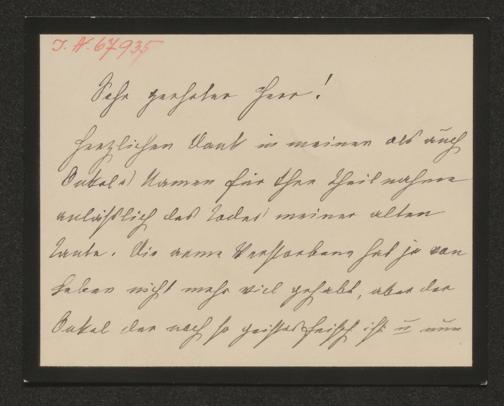 I. N. 67935
Sehr geehrter Herr!
Herzlichen Dank in meinem als auch
Onkels Namen für Ihre Theilnahme
anläßlich des Todes meiner alten
Tante. Die arme Verstorbene hat ja vom
Leben nicht mehr viel gehabt, aber der
Onkel der noch so geistesfrisch ist u nun